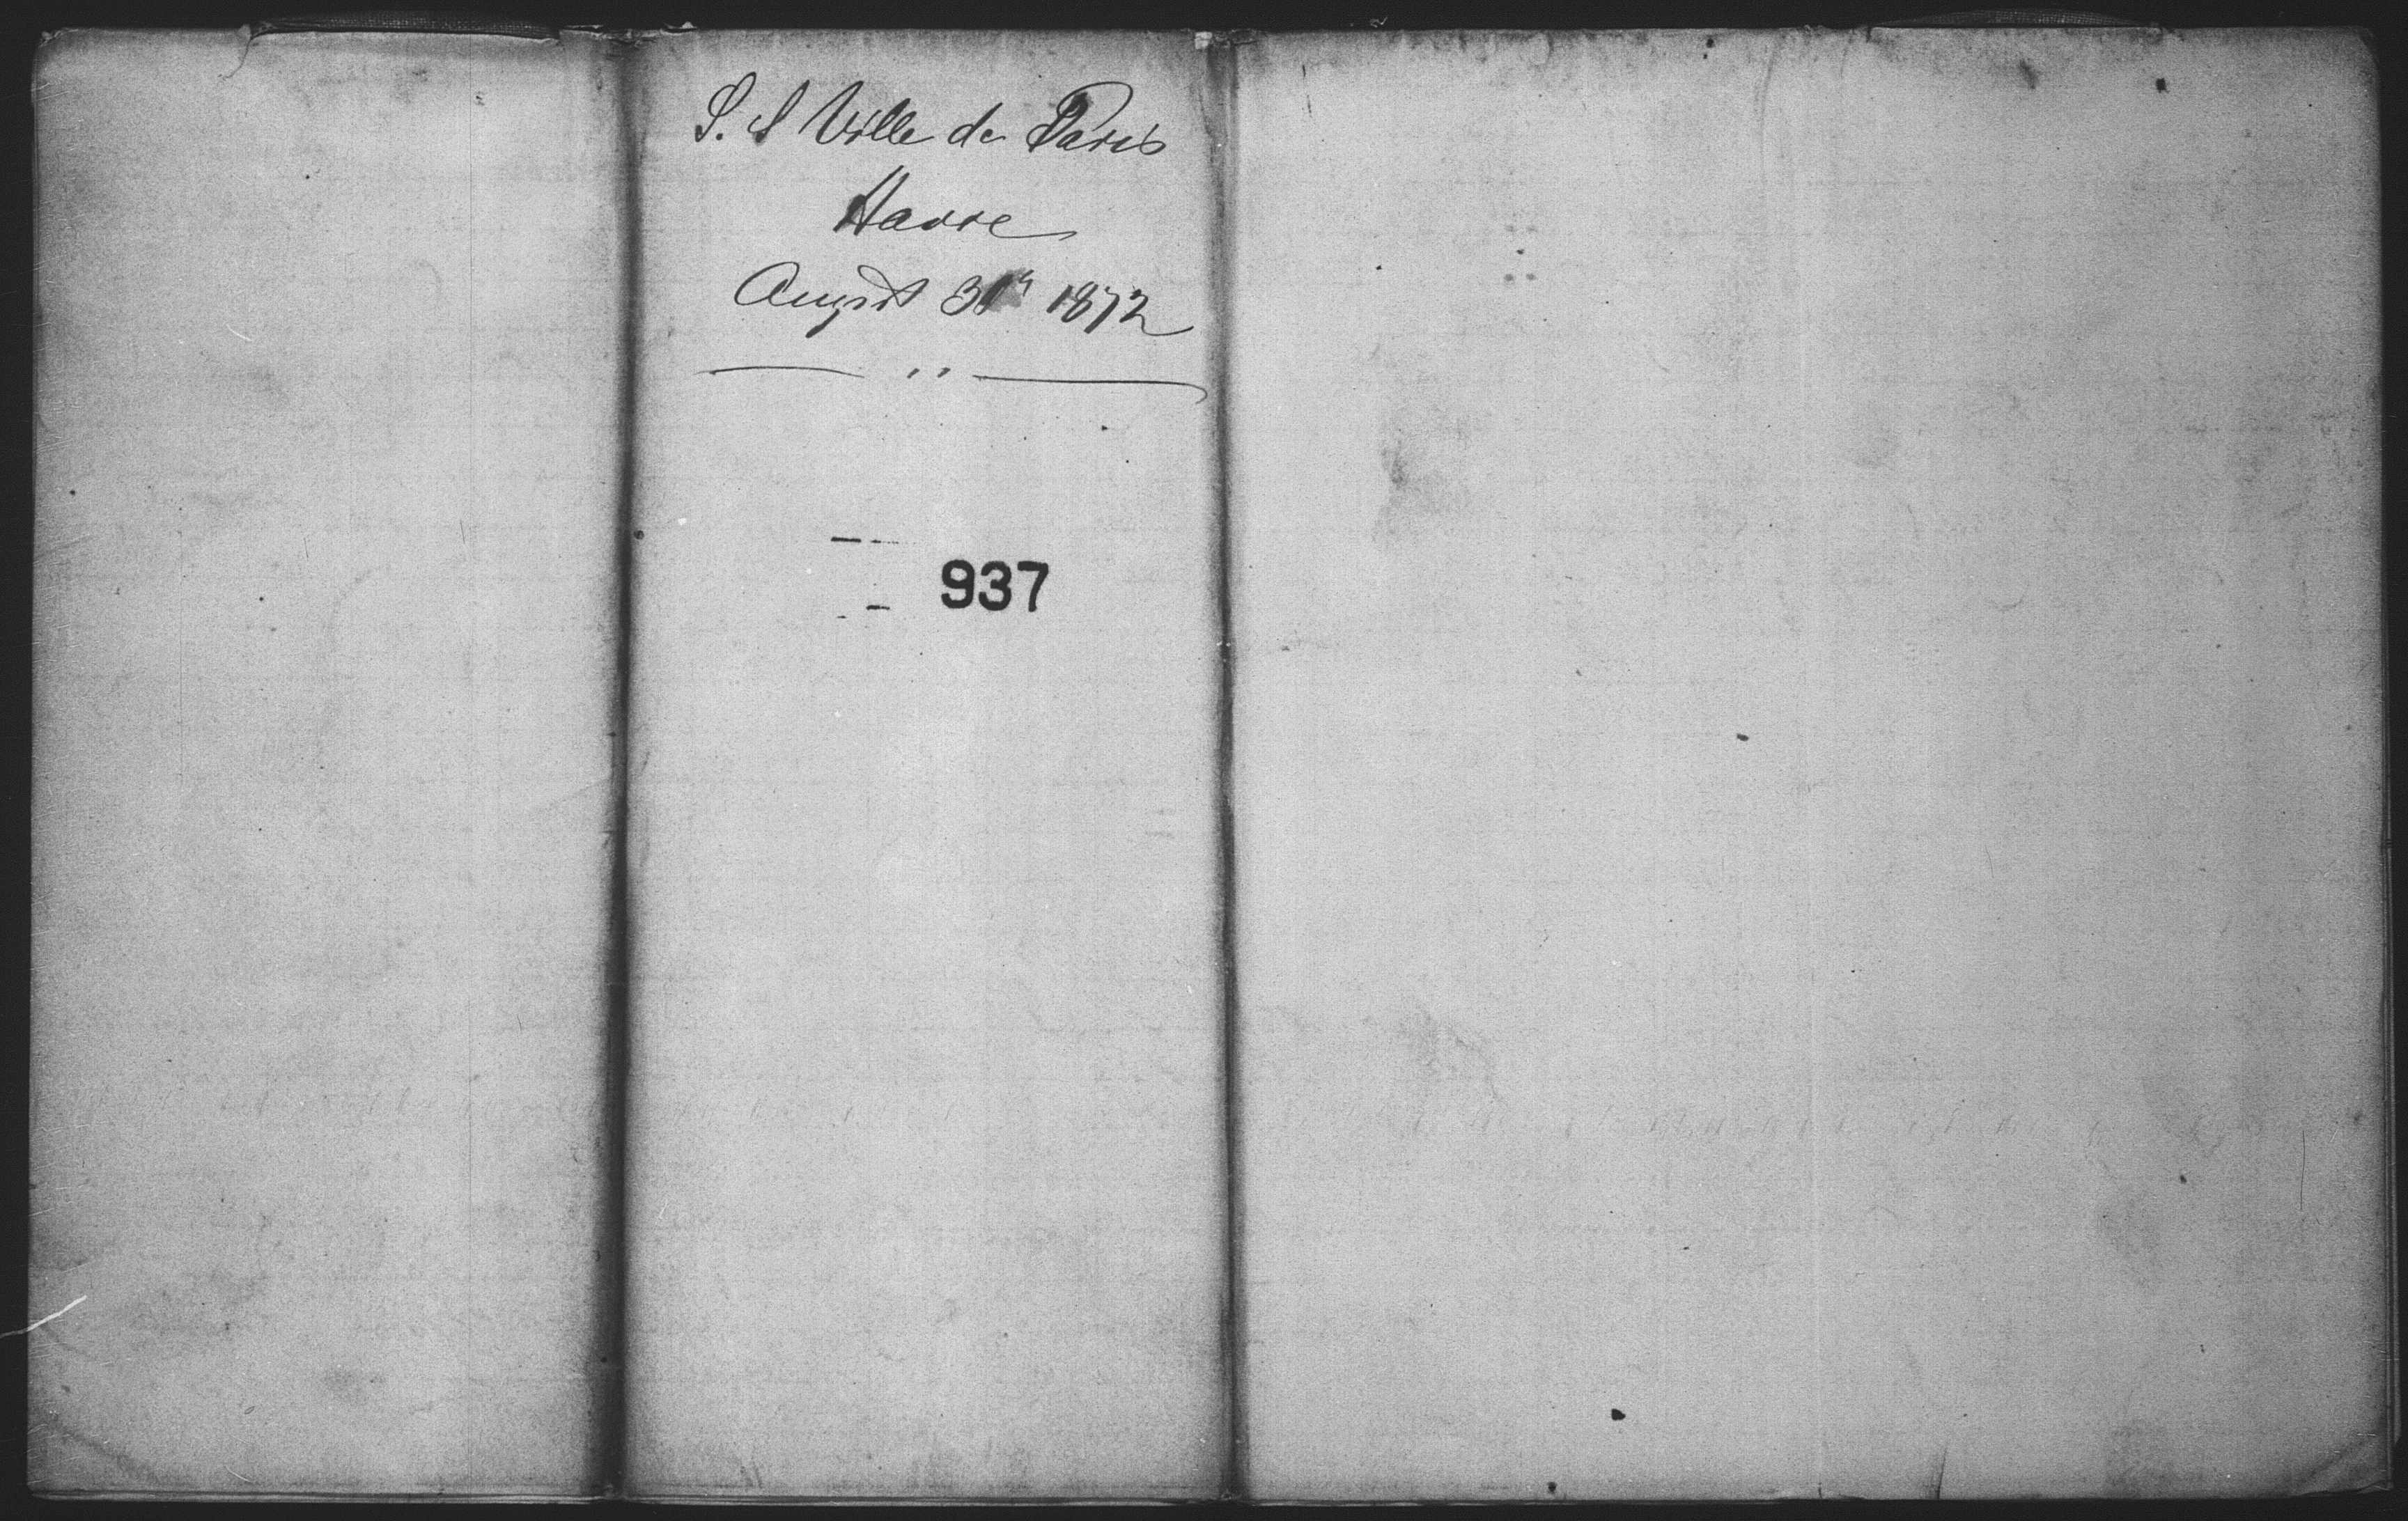 S. S Ville de Paris
Havre
August 31st 1872
937